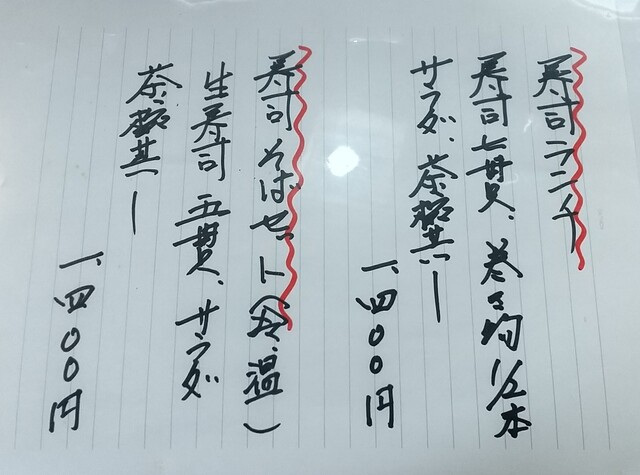 寿司ランチ
寿司七貫、巻き物1/2本
サラダ、茶碗蒸し
一、四〇〇円
寿司そばセット(冷、温)
生寿司五貫、サラダ
茶碗蒸し
一、四〇〇円